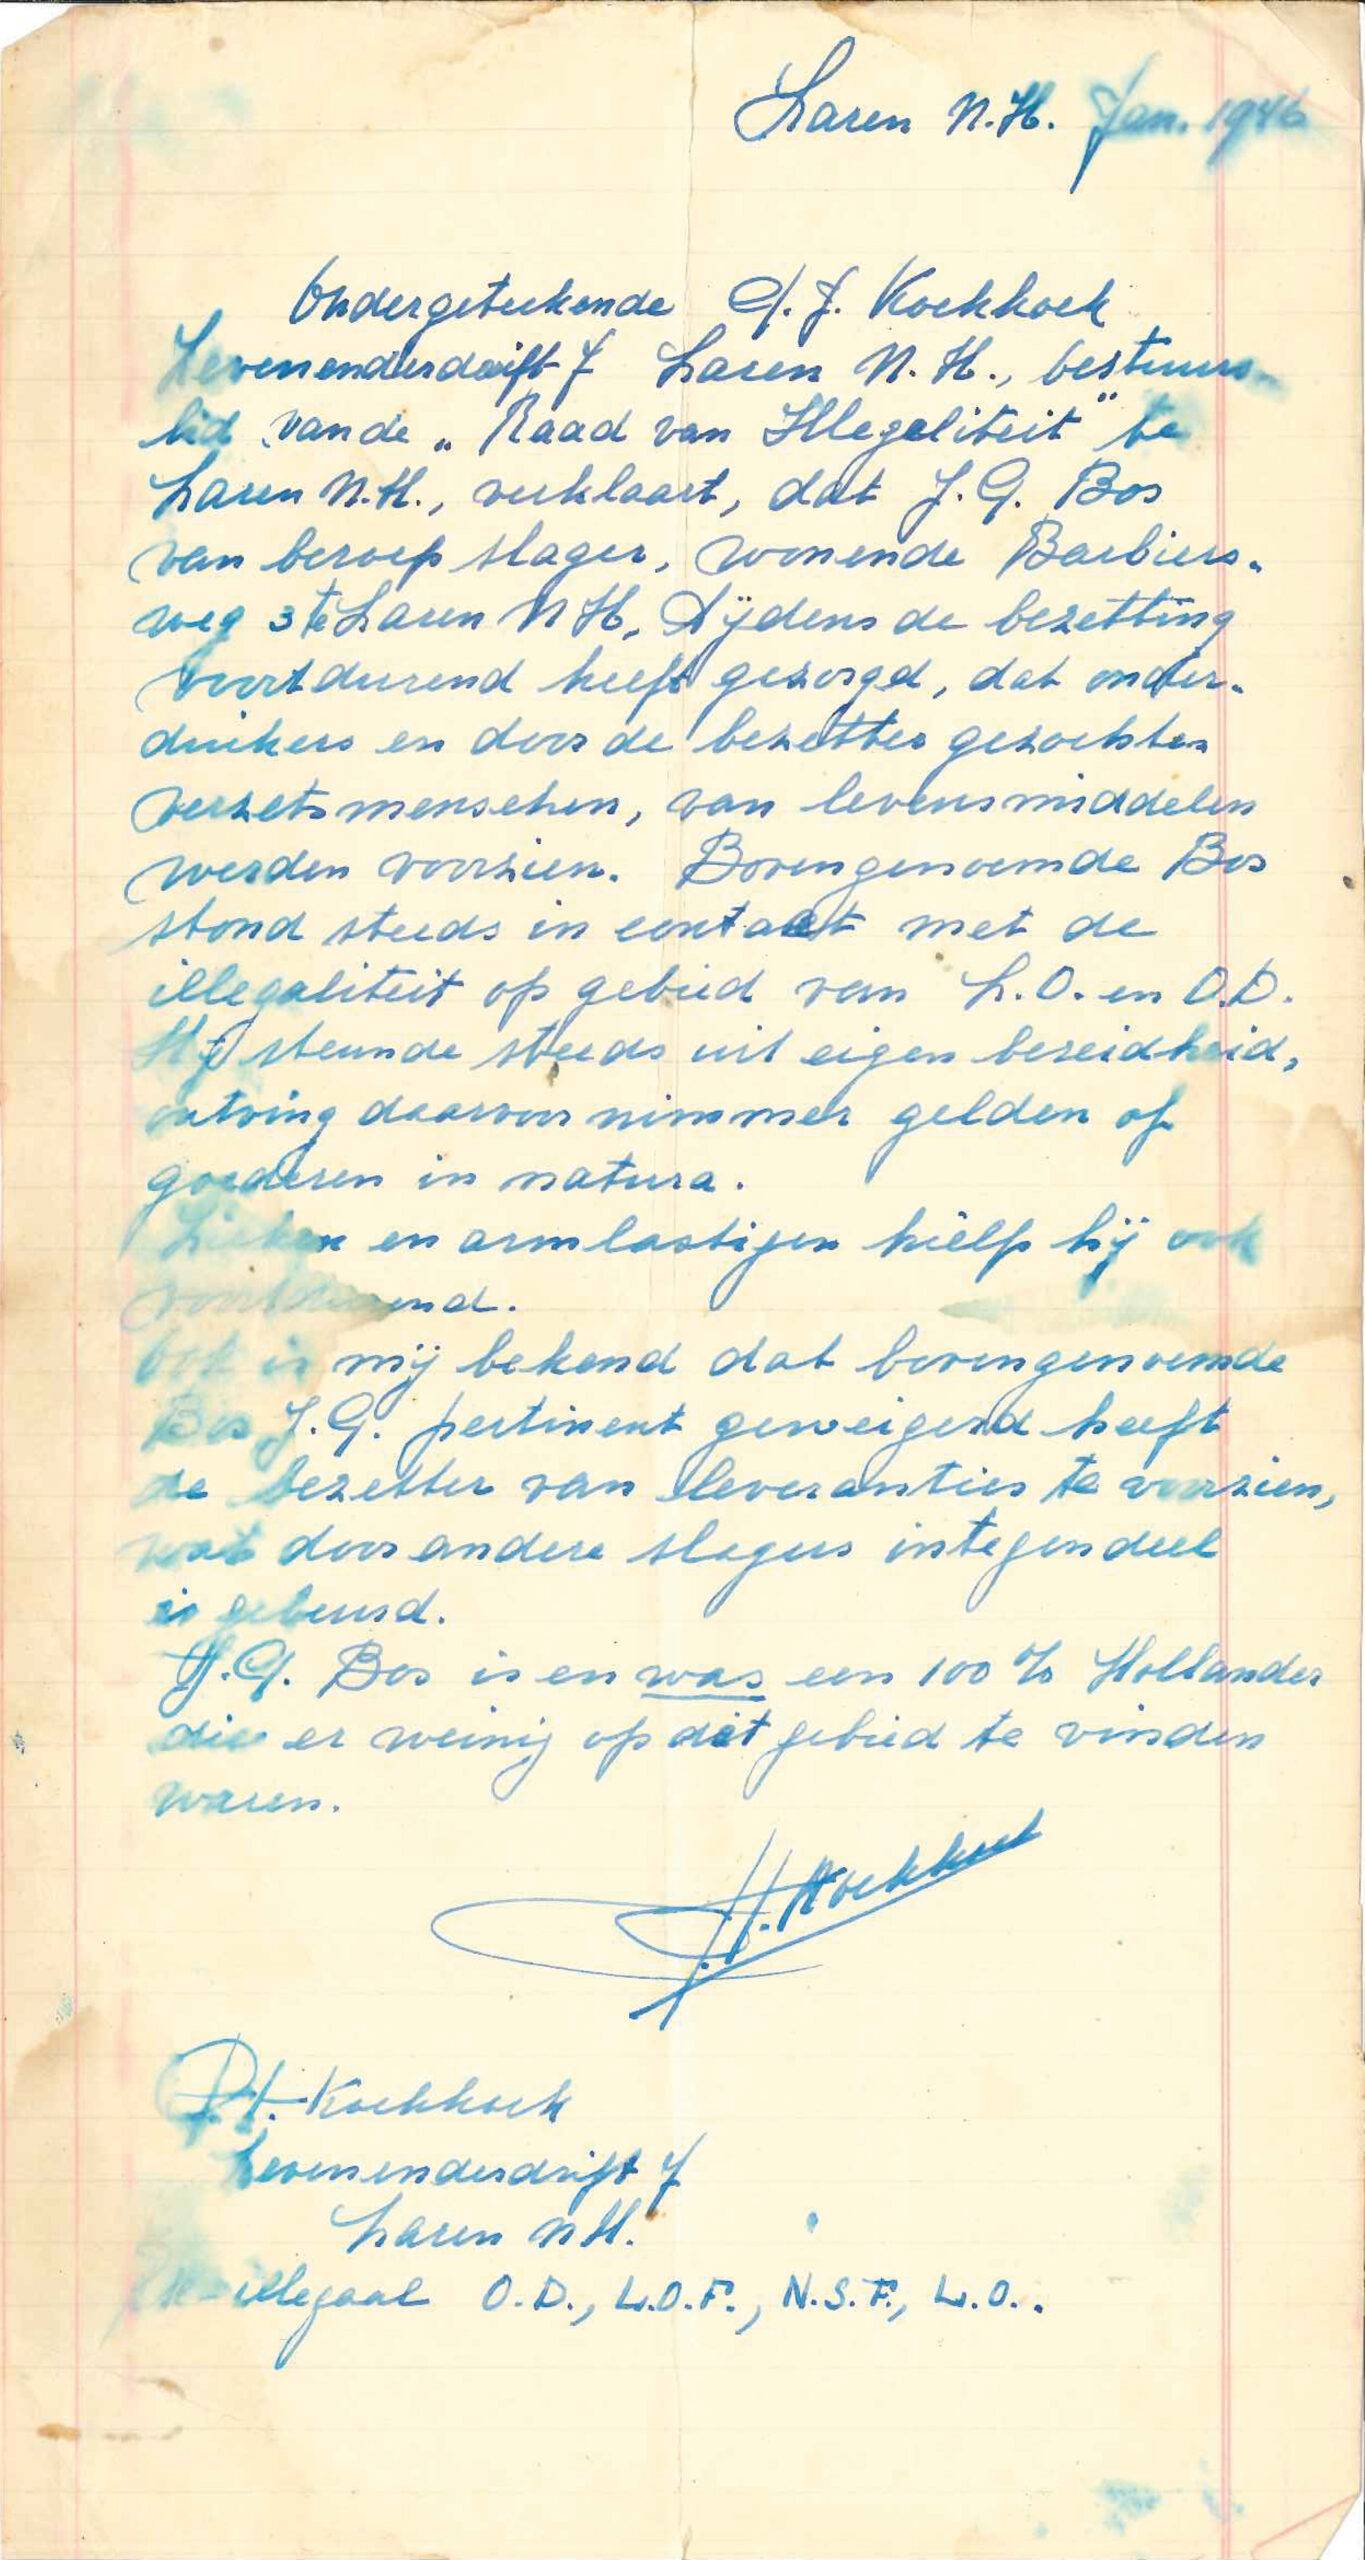 Laren N.H. Jan. 1946
Ondergeteekende A. J. Koekkoek
Levenenderdrift 7 Laren N. H., bestuurs-
lid van de „Raad van Illegaliteit" te
Laren N.H., verklaart, dat J. G. Bos
van beroep slager, wonende Barbiers-
weg 3 te Laren N H, tijdens de bezetting
voortdurend heeft gezorgd, dat onder-
duikers en door de bezetter gezochten
verzetsmenschen, van levensmiddelen
werden voorzien. Bovengenoemde Bos
stond steeds in contact met de
illegaliteit op gebied van L.O. en O.D.
Hij steunde steeds uit eigen bereidheid,
ontving daarvoor nimmer gelden of
goederen in natura.
Zieken en armlastigen hielp hij ook
voortdurend.
Ook is mij bekend dat bovengenoemde
Bos J.G. pertinent geweigerd heeft
de bezetter van leveranties te voorzien,
wat door andere slagers integendeel
is gebeurd.
J.G. Bos is en was een 100 % Hollander
die er weinig op dit gebied te vinden
waren.
Koekkoek
Koekkoek
Levenenderdrift 7
Laren N H.
illegaal O.D., L.O.F., N.S.F., L.O..